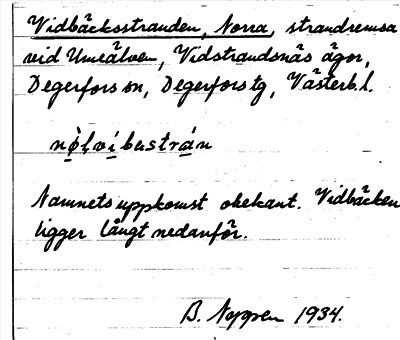 Vidbäcksstranden, Norra, strandremsa
vid Umeälven, Vidstrandsnäs ägor,
Degerfors sn, Degerfors tg, Västerb. l.
nọlvíbastrán
Namnets uppkomst obekant. Vidbäcken
ligger långt nedanför.
B. 1934.